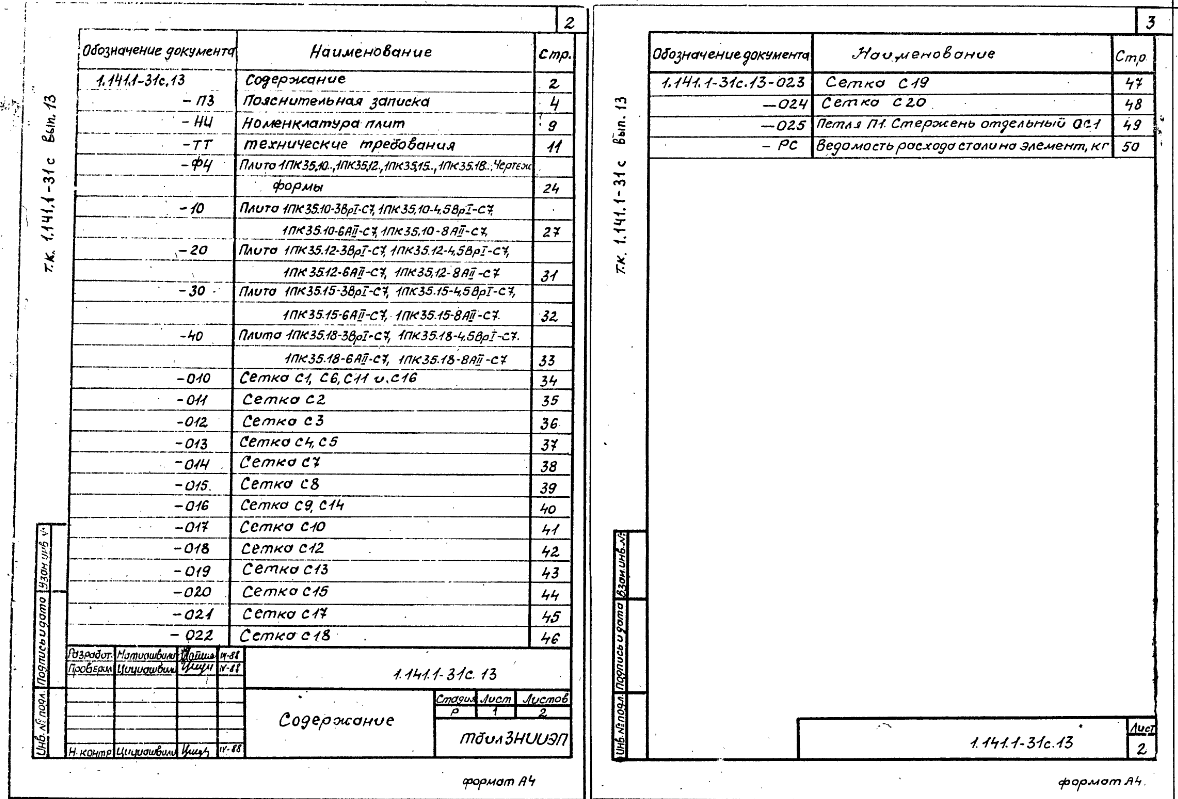 2
Обозначение документа Наименование Стр.
1.141.1-31с.13 Содержание 2
-ПЗ Пояснительная записка 4
-НИ Номенклатура плит 9
-ТТ Технические требования 11
-ФЧ Плита 1ПК35.10.., 1ПК35.12, 1ПК35.15.., 1ПК35.18.. Чертеж
формы 24
-10 Плита 1ПК35.10-3ВрI-С7, 1ПК35.10-4,5ВрI-С7,
1ПК35.10-6АII-С7, 1ПК35.10-8АII-С7, 27
-20 Плита 1ПК35.12-3ВрI-С7, 1ПК35.12-4,5ВрI-С7,
1ПК35.12-6АII-С7, 1ПК35.12-8АII-С7 31
-30 Плита 1ПК35.15-3ВрI-С7, 1ПК35.15-4,5ВрI-С7,
1ПК35.15-6АII-С7, 1ПК35.15-8АII-С7. 32
-40 Плита 1ПК35.18-3ВрI-С7, 1ПК35.18-4,5ВрI-С7.
1ПК35.18-6АII-С7, 1ПК35.18-8АII-С7 33
-010 Сетка С1, С6, С11 и С16 34
-011 Сетка С2 35
-012 Сетка С3 36
-013 Сетка С4, С5 37
-014 Сетка С7 38
-015 Сетка С8 39
-016 Сетка С9, С14 40
-017 Сетка С10 41
-018 Сетка С12 42
-019 Сетка С13 43
-020 Сетка С15 44
-021 Сетка С17 45
-022 Сетка С18 46
Т.К. 1.141.1-31с Вып. 13
Инв.№ подл. Подпись и дата Взам инв №
Разработ. IV-88
Проверил Цициашвили IV-88
Н.контр Цициашвили IV-88
1.141.1-31с.13
Содержание
Стадия Лист Листов
Р 1 2
ТбилЗНИИЭП
формат А4
3
Обозначение документа Наименование Стр
1.141.1-31с.13-023 Сетка С19 47
-024 Сетка С20 48
-025 Петля П1. Стержень отдельный ОС1 49
-РС Ведомость расхода стали на элемент, кг 50
Т.К. 1.141.1-31с Вып. 13
Инв.№ подл. Подпись и дата Взам инв.№
1.141.1-31с.13
Лист
2
формат А4.